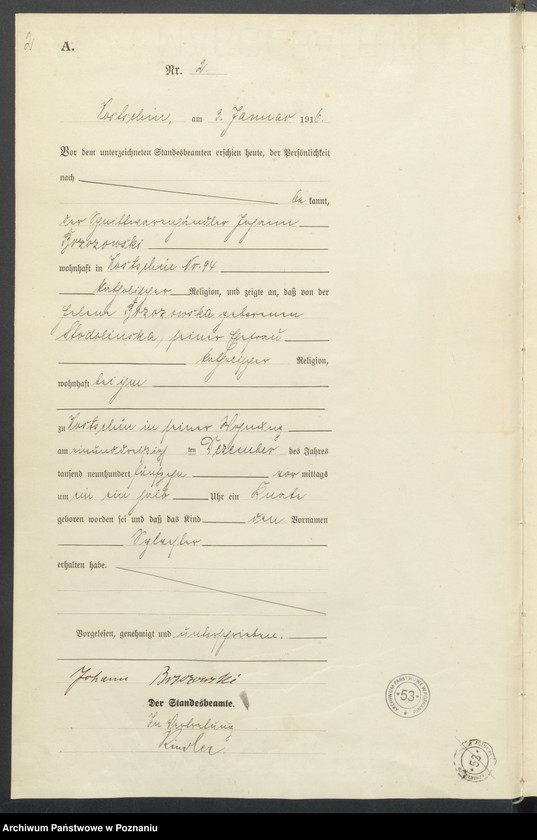 2
A.
Nr. 2.
Kostschin, am 3. Januar 1916.
Vor dem unterzeichneten Standesbeamten erschien heute, der Persönlichkeit
nach
be kannt,
der Schnittwarenhändler Johann
Brzozowski
wohnhaft in Kostschin Nr. 94
katholischer Religion, und zeigte an, daß von der
Helene Brzozowska geborenen
Stodolinska, seiner Ehefrau
katholischer Religion,
wohnhaft bei ihm
zu Kostschin in seiner Wohnung
am einunddreißigsten Dezember des Jahres
tausend neunhundert fünfzehn vor mittags
um ein ein halb Uhr ein Knabe
geboren worden sei und daß das Kind den Vornamen
Sylvester
erhalten habe.
Vorgelesen, genehmigt und unterschrieben.
Johann Brzozowski
Der Standesbeamte.
In Vertretung
Kindler
53
53
Archiwum Państwowe w Poznaniu